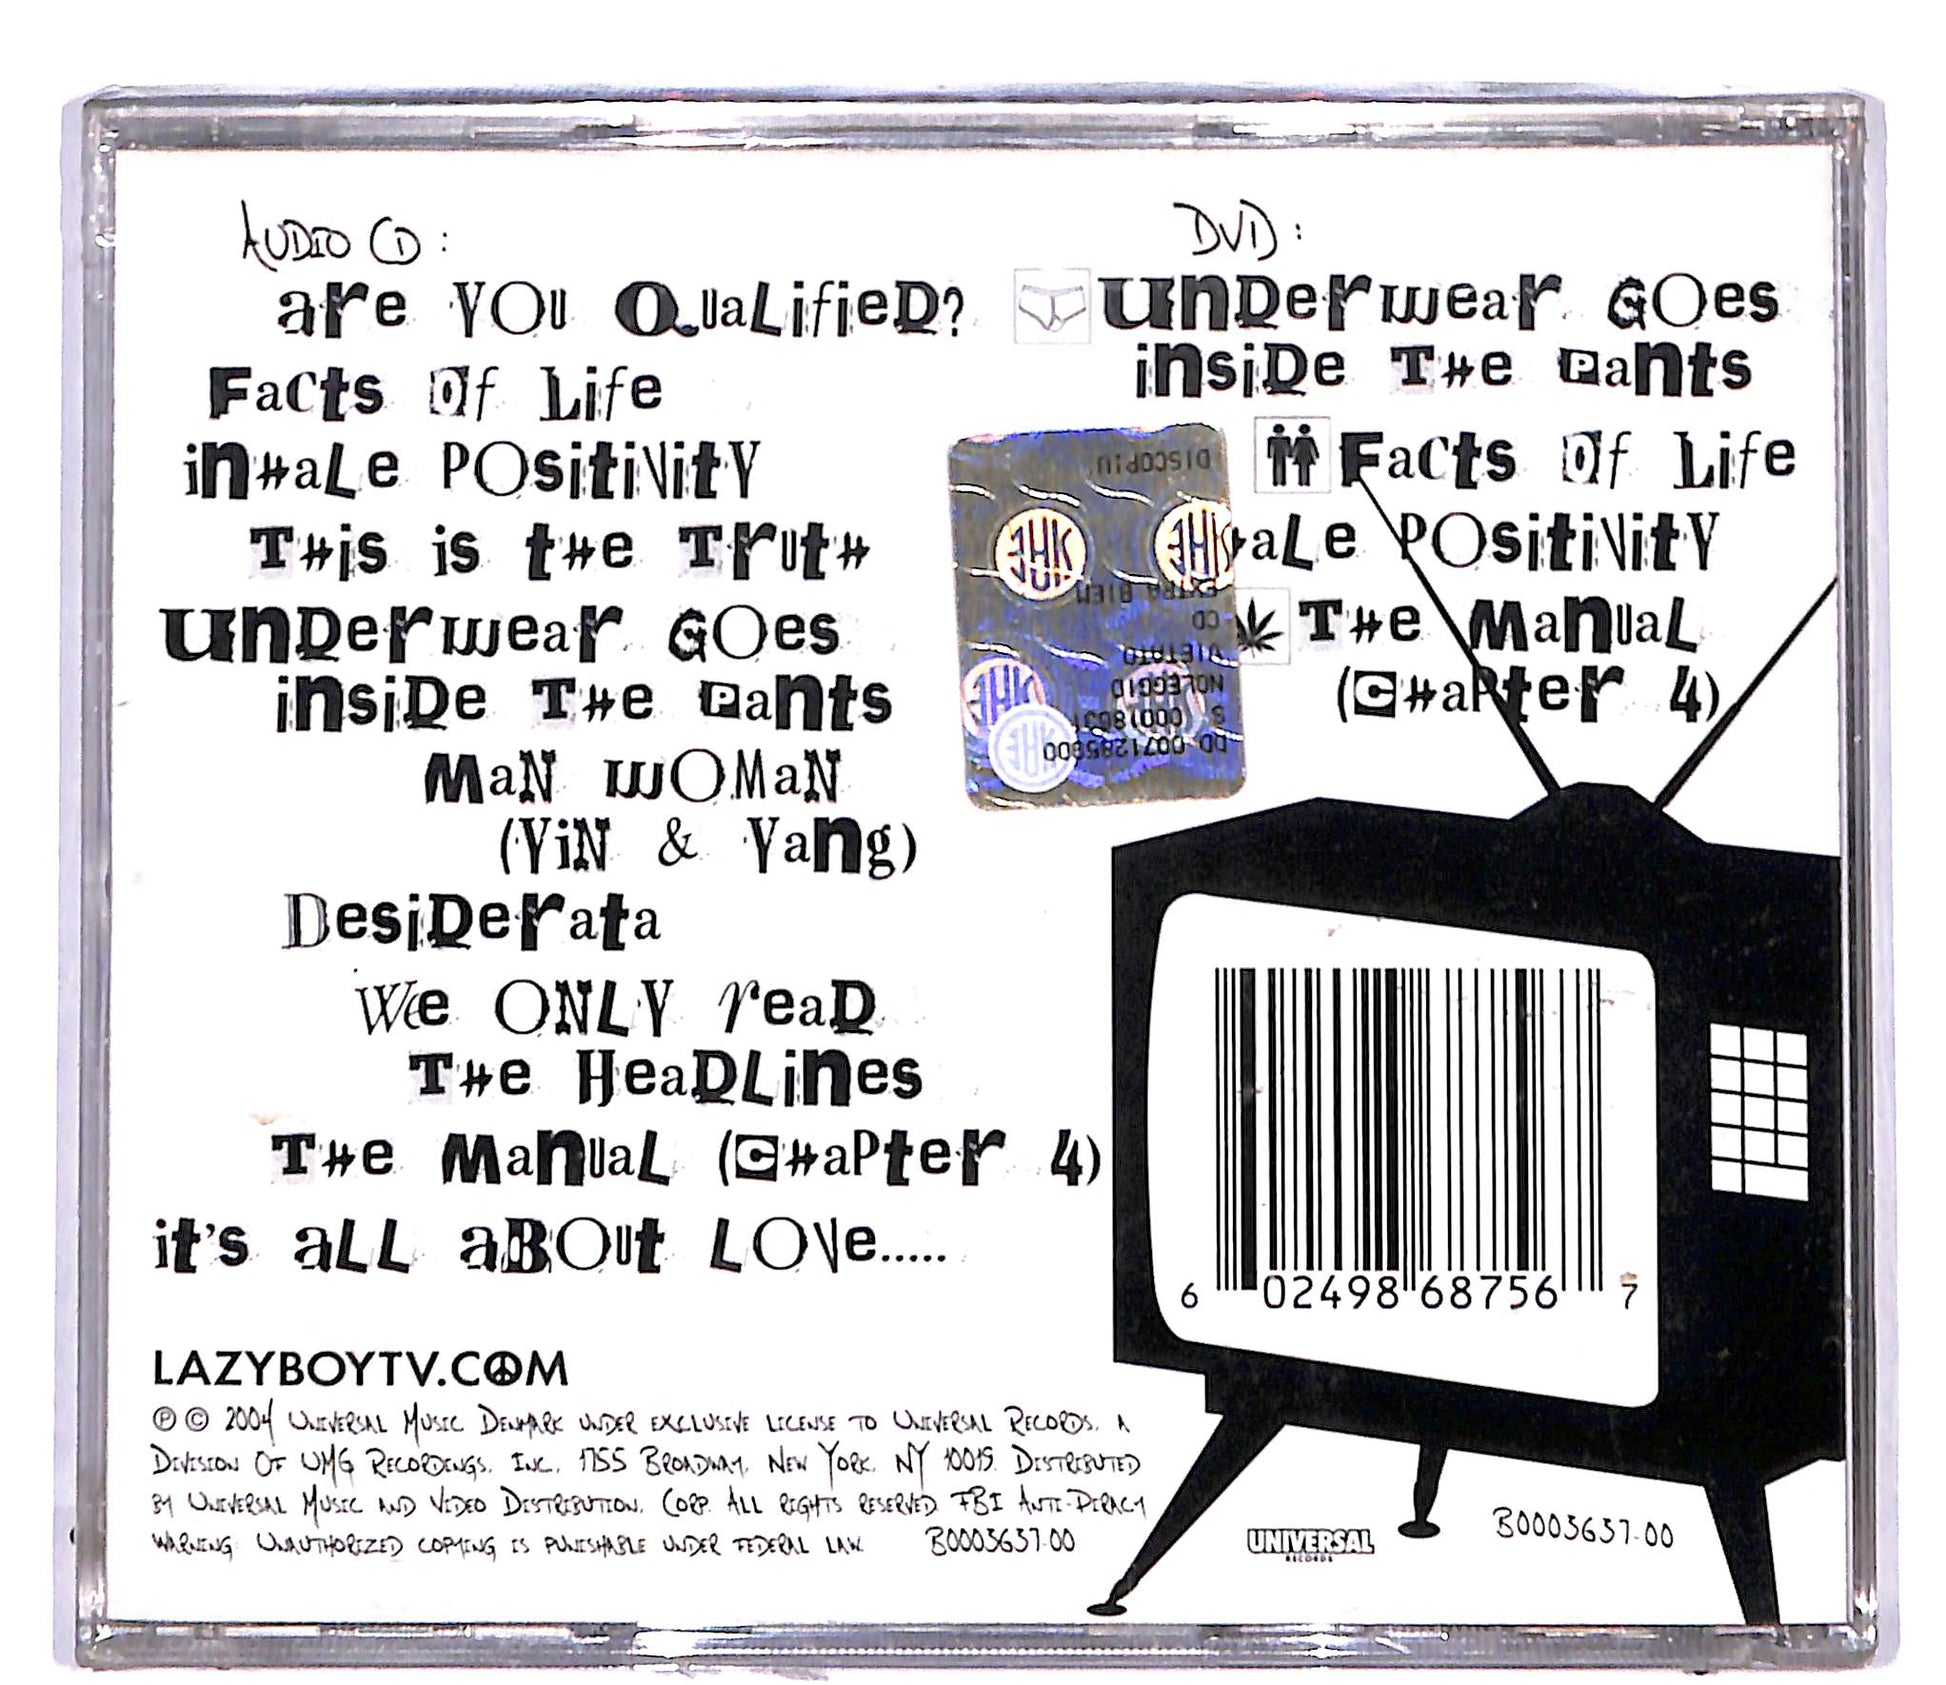 AUDIO CD:
ARE YOU QUALIFIED?
FACTS OF LIFE
INHALE POSITIVITY
THIS IS THE TRUTH
UNDERWEAR GOES
INSIDE THE PANTS
MAN WOMAN
(YIN & YANG)
DESIDERATA
WE ONLY READ
THE HEADLINES
THE MANUAL (CHAPTER 4)
IT'S ALL ABOUT LOVE.....
DVD:
UNDERWEAR GOES
INSIDE THE PANTS
FACTS OF LIFE
ALE POSITIVITY
THE MANUAL
(CHAPTER 4)
DISCOPIU
EXTRA BIEM
CD
VIETATO
NOLEGGIO
DD 00712855900
6 02498 68756 7
LAZYBOYTV.COM
Ⓟ © 2004 UNIVERSAL MUSIC DENMARK UNDER EXCLUSIVE LICENSE TO UNIVERSAL RECORDS, A
DIVISION OF UMG RECORDINGS, INC., 1755 BROADWAY, NEW YORK, NY 10019. DISTRIBUTED
BY UNIVERSAL MUSIC AND VIDEO DISTRIBUTION, CORP. ALL RIGHTS RESERVED FBI ANTI-PIRACY
WARNING: UNAUTHORIZED COPYING IS PUNISHABLE UNDER FEDERAL LAW. B0003637-00
UNIVERSAL
RECORDS
B0003637-00